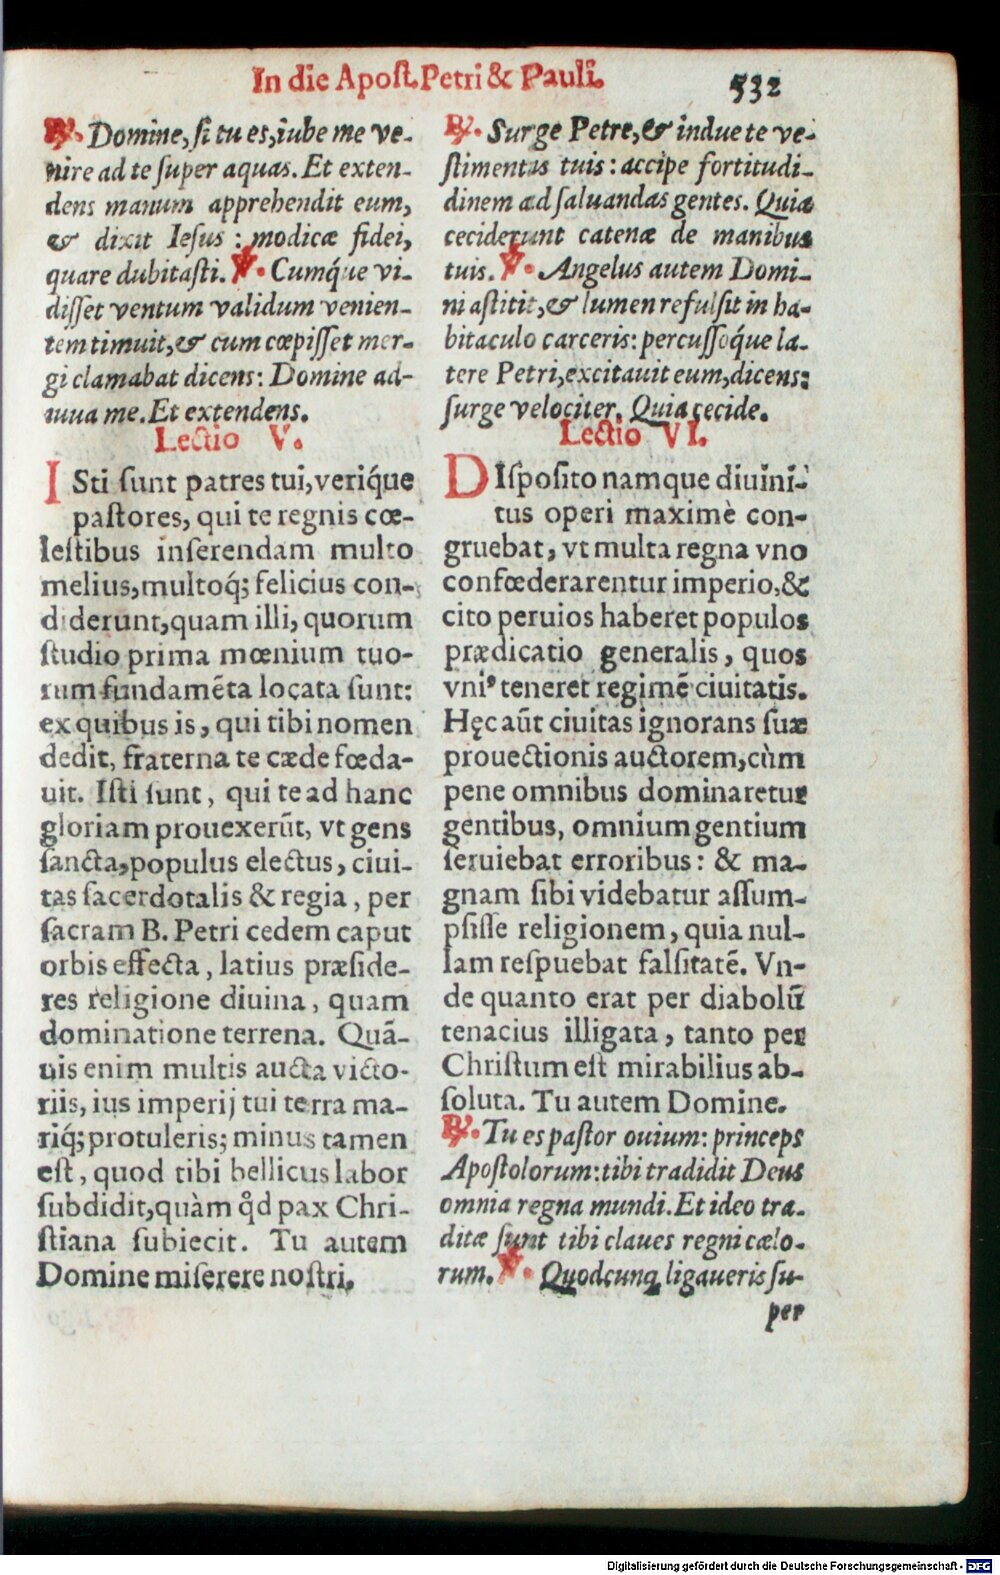 In die Apost. Petri & Pauli. 532
℟. Domine, si tu es, iube me ve-
nire ad te super aquas. Et exten-
dens manum apprehendit eum,
& dixit Iesus : modicæ fidei,
quare dubitasti. ℣. Cumq́ue vi-
disset ventum validum venien-
tem timuit, & cum cœpisset mer-
gi clamabat dicens: Domine ad-
iuua me. Et extendens.
Lectio V.
ISti sunt patres tui, veriq́ue
pastores, qui te regnis cœ-
lestibus inserendam multo
melius, multoq́; felicius con-
diderunt, quam illi, quorum
studio prima mœnium tuo-
rum fundamẽta locata sunt:
ex quibus is, qui tibi nomen
dedit, fraterna te cæde fœda-
uit. Isti sunt, qui te ad hanc
gloriam prouexerũt, vt gens
sancta, populus electus, ciui-
tas sacerdotalis & regia, per
sacram B. Petri cedem caput
orbis effecta, latius præside-
res religione diuina, quam
dominatione terrena. Quã-
uis enim multis aucta victo-
riis, ius imperij tui terra ma-
riq́; protuleris; minus tamen
est, quod tibi bellicus labor
subdidit, quàm q̊d pax Chri-
stiana subiecit. Tu autem
Domine miserere nostri.
℟. Surge Petre, & indue te ve-
stimentis tuis : accipe fortitudi-
dinem ad saluandas gentes. Quia
ceciderunt catenæ de manibus
tuis. ℣. Angelus autem Domi-
ni astitit, & lumen refulsit in ha-
bitaculo carceris: percussoq́ue la-
tere Petri, excitauit eum, dicens:
surge velociter. Quia cecide.
Lectio VI.
DIsposito namque diuini-
tus operi maximè con-
gruebat, vt multa regna vno
confœderarentur imperio, &
cito peruios haberet populos
prædicatio generalis, quos
vniꝰ teneret regimẽ ciuitatis.
Hęc aũt ciuitas ignorans suæ
prouectionis auctorem, cùm
pene omnibus dominaretur
gentibus, omnium gentium
seruiebat erroribus: & ma-
gnam sibi videbatur assum-
psisse religionem, quia nul-
lam respuebat falsitatẽ. Vn-
de quanto erat per diabolũ
tenacius illigata, tanto per
Christum est mirabilius ab-
soluta. Tu autem Domine.
℟. Tu es pastor ouium: princeps
Apostolorum: tibi tradidit Deus
omnia regna mundi. Et ideo tra-
ditæ sunt tibi claues regni cælo-
rum. ℣. Quodcunq ligaueris su-
per
Digitalisierung gefördert durch die Deutsche Forschungsgemeinschaft - DFG